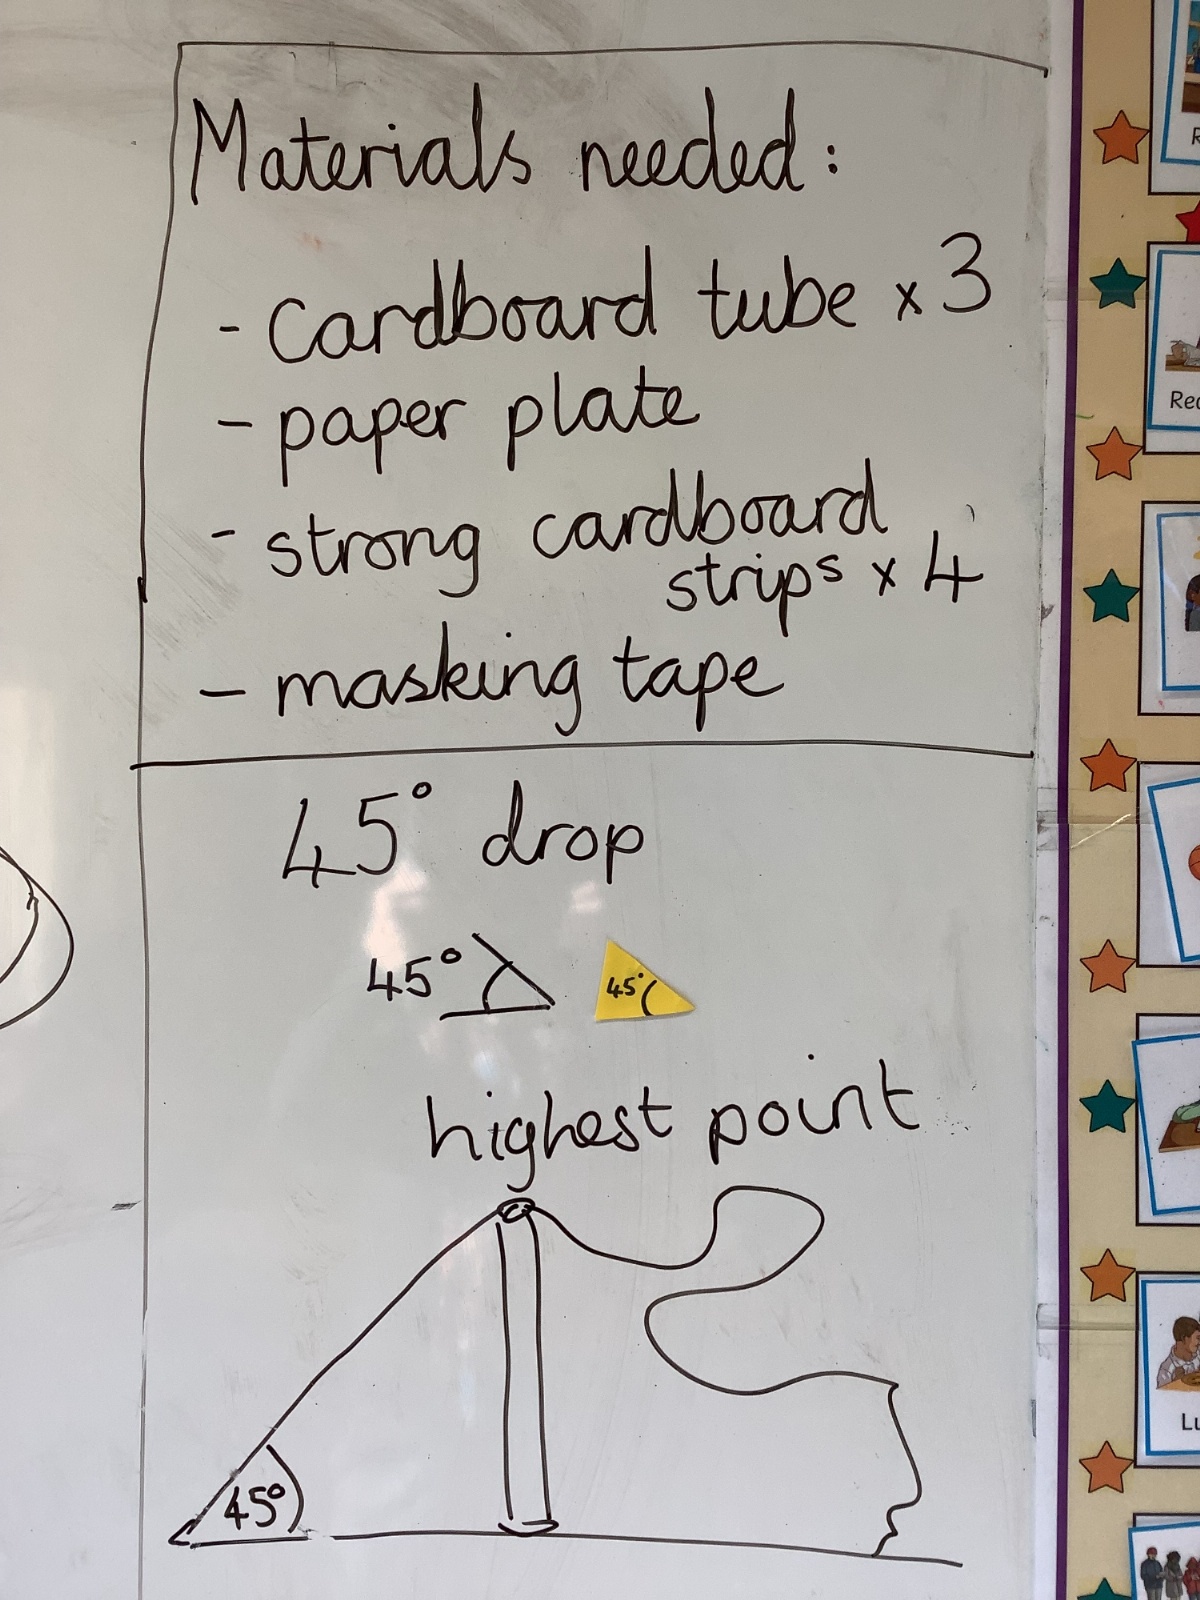 Materials needed:
- cardboard tube x 3
- paper plate
- strong cardboard
strips x 4
- masking tape
45° drop
45°
45°
highest point
45°